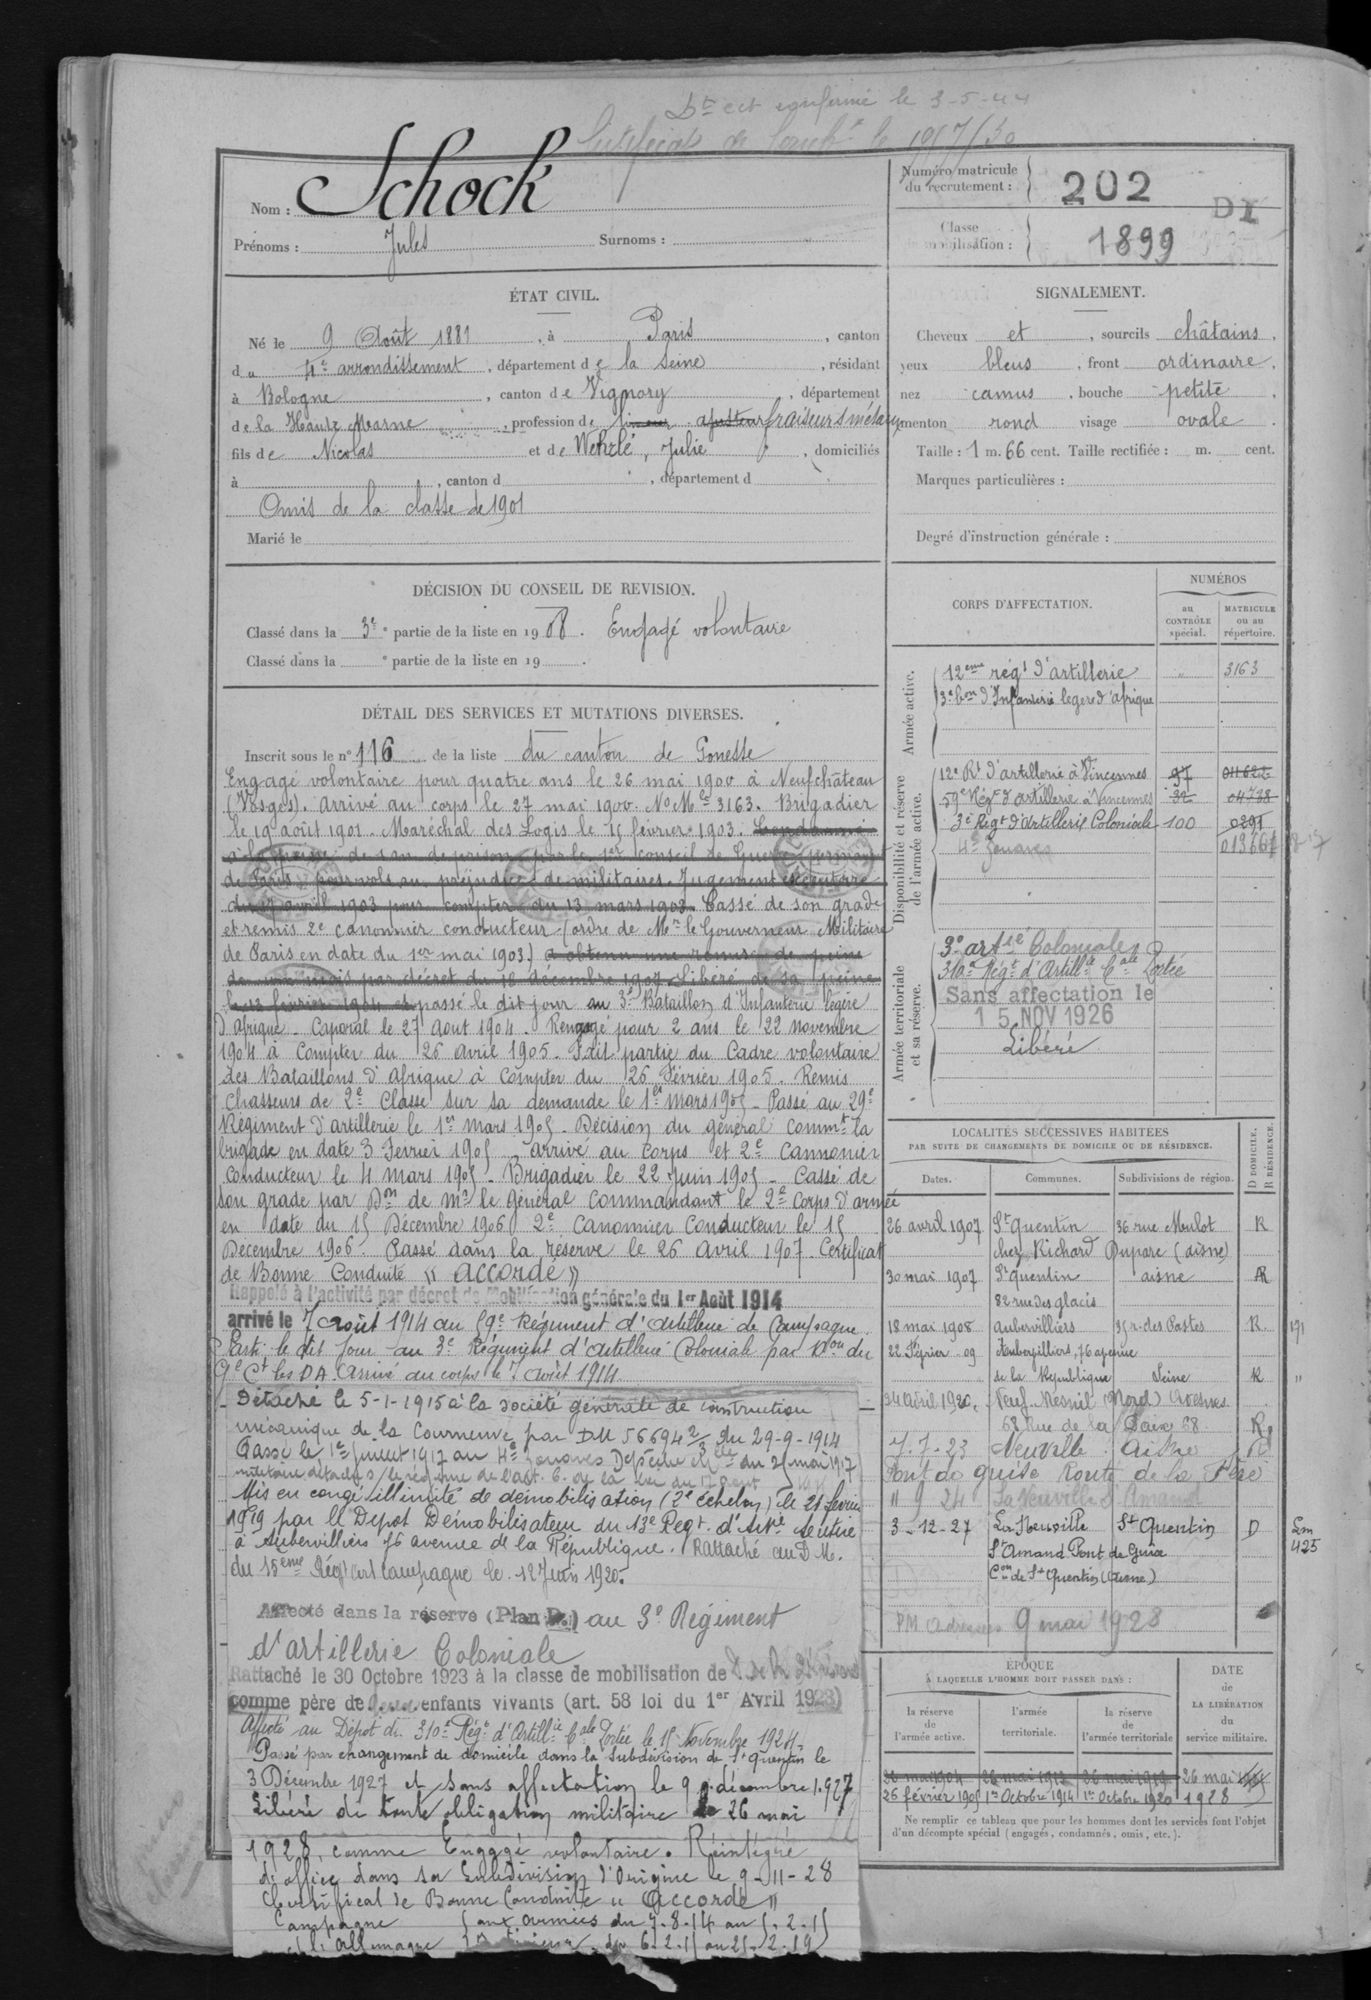 Dt est confirmé le 3-5-44
Certificat de le 19/7/30
Nom : Schock
Prénoms : Jules Surnoms :
Numéro matricule
du recrutement : 202
D I
Classe
mobilisation : 1899
ÉTAT CIVIL.
Né le 9 Août 1881, à Paris, canton
du 4e arrondissement, département de la Seine, résidant
à Bologne, canton de Vignory, département
de la Haute Marne, profession de ajusteur fraiseur s métaux
fils de Nicolas et de Wehrlé, Julie, domiciliés
à , canton d , département d
Omis de la classe de 1901
Marié le
SIGNALEMENT.
Cheveux et , sourcils châtains,
yeux bleus, front ordinaire,
nez camus, bouche petite,
menton rond visage ovale.
Taille : 1 m. 66 cent. Taille rectifiée : m. cent.
Marques particulières :
Degré d'instruction générale :
DÉCISION DU CONSEIL DE REVISION.
Classé dans la 3e partie de la liste en 1908. Engagé volontaire
Classé dans la e partie de la liste en 19 .
DÉTAIL DES SERVICES ET MUTATIONS DIVERSES.
Inscrit sous le n° 116 de la liste du canton de Gonesse
Engagé volontaire pour quatre ans le 26 mai 1900 à Neufchâteau
(Vosges). Arrivé au corps le 27 mai 1900. No Mle 3163. Brigadier
le 19 août 1901. Maréchal des Logis le 15 février 1903. Condamné
à la peine de 1 an de prison par le 1er conseil de Guerre permanent
de Paris pour vols au préjudice de militaires. Jugement exécutoire
du 17 avril 1903 pour compter du 13 mars 1903. Cassé de son grade
et remis 2e canonnier conducteur (ordre de Mr le Gouverneur Militaire
de Paris en date du 1er mai 1903.) a obtenu une remise de peine
de mois par décret du 18 décembre 1907 Libéré de sa peine
le 13 février 1904 et passé le dit jour au 3e Bataillon d'Infanterie légère
d'afrique. Caporal le 27 Aout 1904. Rengagé pour 2 ans le 22 novembre
1904 à compter du 26 avril 1905. Fait partie du Cadre volontaire
des Bataillons d'afrique à compter du 26 Février 1905. Remis
chasseurs de 2e Classe sur sa demande le 1er mars 1905. Passé au 29e
Régiment d'artillerie le 1er mars 1905. Décision du général commt la
brigade en date 3 Fevrier 1905 arrivé au corps et 2e Cannonier
conducteur le 4 mars 1905. Brigadier le 22 juin 1905. Cassé de
son grade par Don de mr le Général Commandant le 2e Corps d'armée
en date du 15 Décembre 1906 2e Canonnier Conducteur le 15
Decembre 1906. Passé dans la réserve le 26 avril 1907. Certificat
de Bonne Conduite « accordé »
Rappelé à l'activité par décret de Mobilisation générale du 1er Août 1914
arrivé le 7 août 1914 au 59e Régiment d'artillerie de Campagne
Parti le dit jour au 3e Régiment d'artillerie Coloniale par Don du
Gal Ct les DA. Arrivé au corps le 7 août 1914.
Détaché le 5-1-1915 à la société générale de construction
mécanique de la Courneuve par DM 56694 2/3 du 29-9-1914
Passé le 1er Juillet 1917 au 4e Zouaves Dépêche Mlle du 25 mai 1917
Mis en congé illimité de démobilisation (2e échelon) le 21 fevrier
1919 par le Dépot Démobilisateur du 13e Regt. d'Artie se retire
à Aubervilliers 76 avenue de la République. Rattaché au D.M.
du 15eme Régt art campagne le 12 Juin 1920.
Affecté dans la réserve (Plan D.) au 3e Régiment
d'artillerie Coloniale
Rattaché le 30 Octobre 1923 à la classe de mobilisation de
comme père de deux enfants vivants (art. 58 loi du 1er Avril 1923)
Affecté au Dépot du 310e Régt d'Artillie Cale Portée le 15 Novembre 1924.
Passé par changement de domicile dans la subdivision de St quentin le
3 Décembre 1927 et sans affectation le 9 décembre 1927
Libéré de toute obligation militaire le 26 mai
1928, comme Engagé volontaire. Réintégré
d'office dans sa subdivision d'Origine le 9-11-28
Certificat de Bonne Conduite « Accordé »
Campagne { aux armées du 7-8-14 au 5-2-15
Allemagne du 6-2-15 au 21-2-19
CORPS D'AFFECTATION.
NUMÉROS
au CONTRÔLE spécial.
MATRICULE ou au répertoire.
Armée active.
12eme régt d'artillerie " 3163
3e bon d'Infanterie legere d'afrique
Disponibilité et réserve de l'armée active.
12e Rt d'artillerie à Vincennes 97 011622
59e Régt d'artillerie à Vincennes 32 04738
3e Régt d'artillerie Coloniale 100 0291
4e Zouaves 013661
Armée territoriale et sa réserve.
3e artie Coloniale
310e Régt d'Artillie Cale Portée
Sans affectation le
15 NOV 1926
Libéré
LOCALITÉS SUCCESSIVES HABITÉES
PAR SUITE DE CHANGEMENTS DE DOMICILE OU DE RÉSIDENCE.
Dates. Communes. Subdivisions de région. D DOMICILE. R RÉSIDENCE.
26 avril 1907 St Quentin 36 rue Meulot R
chez Richard Dupare (aisne)
30 mai 1907 St quentin aisne R
82 rue des glacis
18 mai 1908 aubervilliers 35 r. des Postes R
22 Février 09 Aubervilliers, 76 avenue
de la République Seine R
24 avril 1920. Neuf-Mesnil (Nord) Avesnes
68 Rue de la Paix 68 R
7.7-23 Neuville Aisne R
Pont de guise Route de la Fère
11 9 24 La Neuville St Amand
3-12-27 La Neuville St Quentin D
St Amand Pont de Guise
Con de St Quentin (Aisne)
Lm 425
PM adresses 9 mai 1928
ÉPOQUE
À LAQUELLE L'HOMME DOIT PASSER DANS :
la réserve de l'armée active.
l'armée territoriale.
la réserve de l'armée territoriale
DATE de LA LIBÉRATION du service militaire.
26 mai 1904 26 mai 1913 26 mai 1919 26 mai
26 février 1905 1er Octobre 1914 1er Octobre 1920 1928
Ne remplir ce tableau que pour les hommes dont les services font l'objet
d'un décompte spécial (engagés, condamnés, omis, etc.).